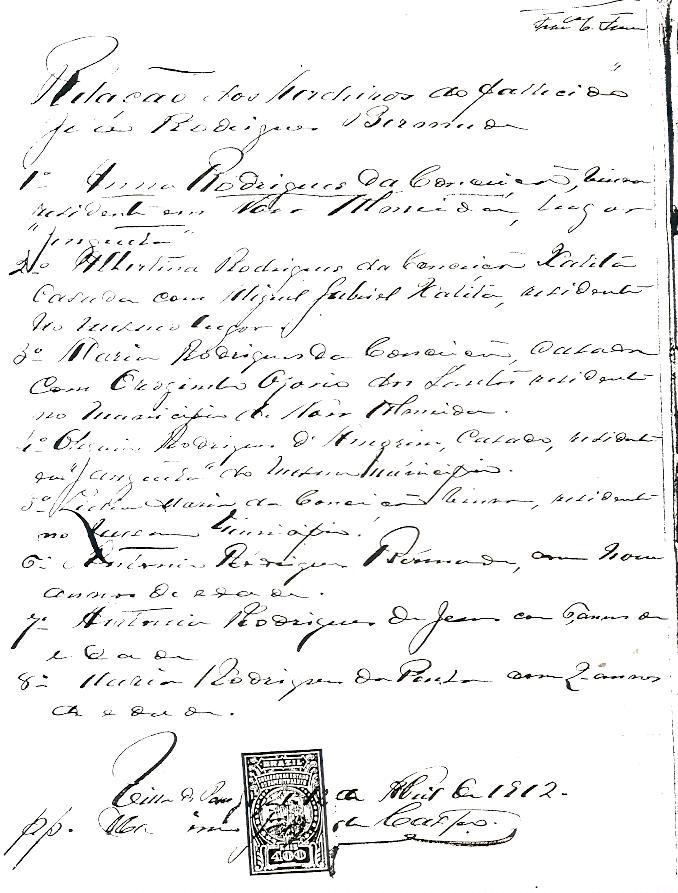 Relação dos Herdeiros do fallecido
José Rodrigues Bermude
1º Anna Rodrigues da Conceição, viuva
residente em Nova Almeida, lugar
2º Albertina Rodrigues da Conceição Xalita
Casada com Miguel Gabriel Xalita, residente
no mesmo lugar.
3º Maria Rodrigues da Conceição, Casada
com Ojorio dos Santos residente
no municipio de Nova Almeida.
4º Rodrigues d'Amorim, Casado, residente
em do mesmo municipio.
5º Maria da Conceição viuva, residente
no mesmo Municipio.
6º Antonio Rodrigues Bermude, com nove
annos de edade.
7º Antonio Rodrigues de Jesus com 6 annos de
edade
8º Maria Rodrigues da Penha com 2 annos
de edade.
de Abril de 1912.
pp. de Castro.
BRASIL
400